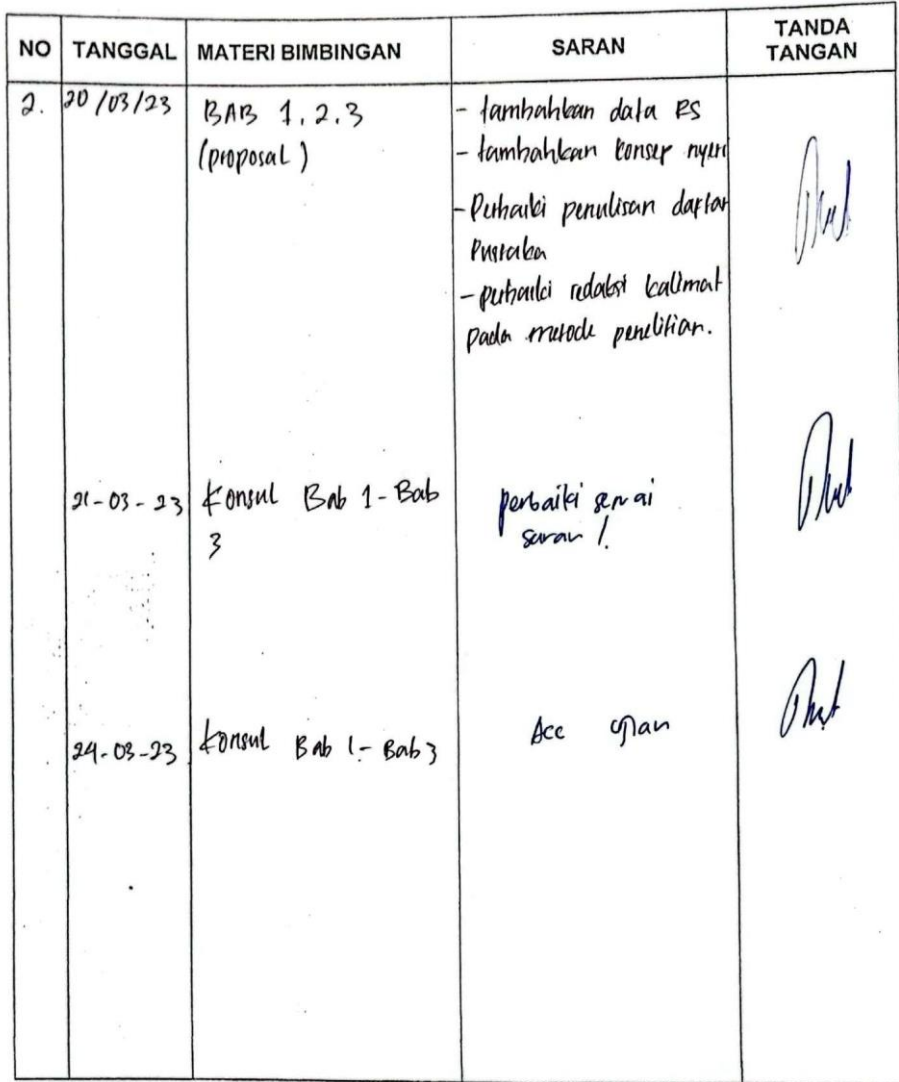 NO TANGGAL MATERI BIMBINGAN SARAN TANDA TANGAN
2. 20/03/23 BAB 1, 2, 3 - tambahkan data RS
(proposal) - tambahkan konsep nyeri
- Perbaiki penulisan daftar
Pustaka
- perbaiki redaksi kalimat
pada metode penelitian.
21-03-23 Konsul Bab 1-Bab perbaiki sesuai
3 saran !
24-03-23 Konsul Bab 1-Bab 3 Acc ujian